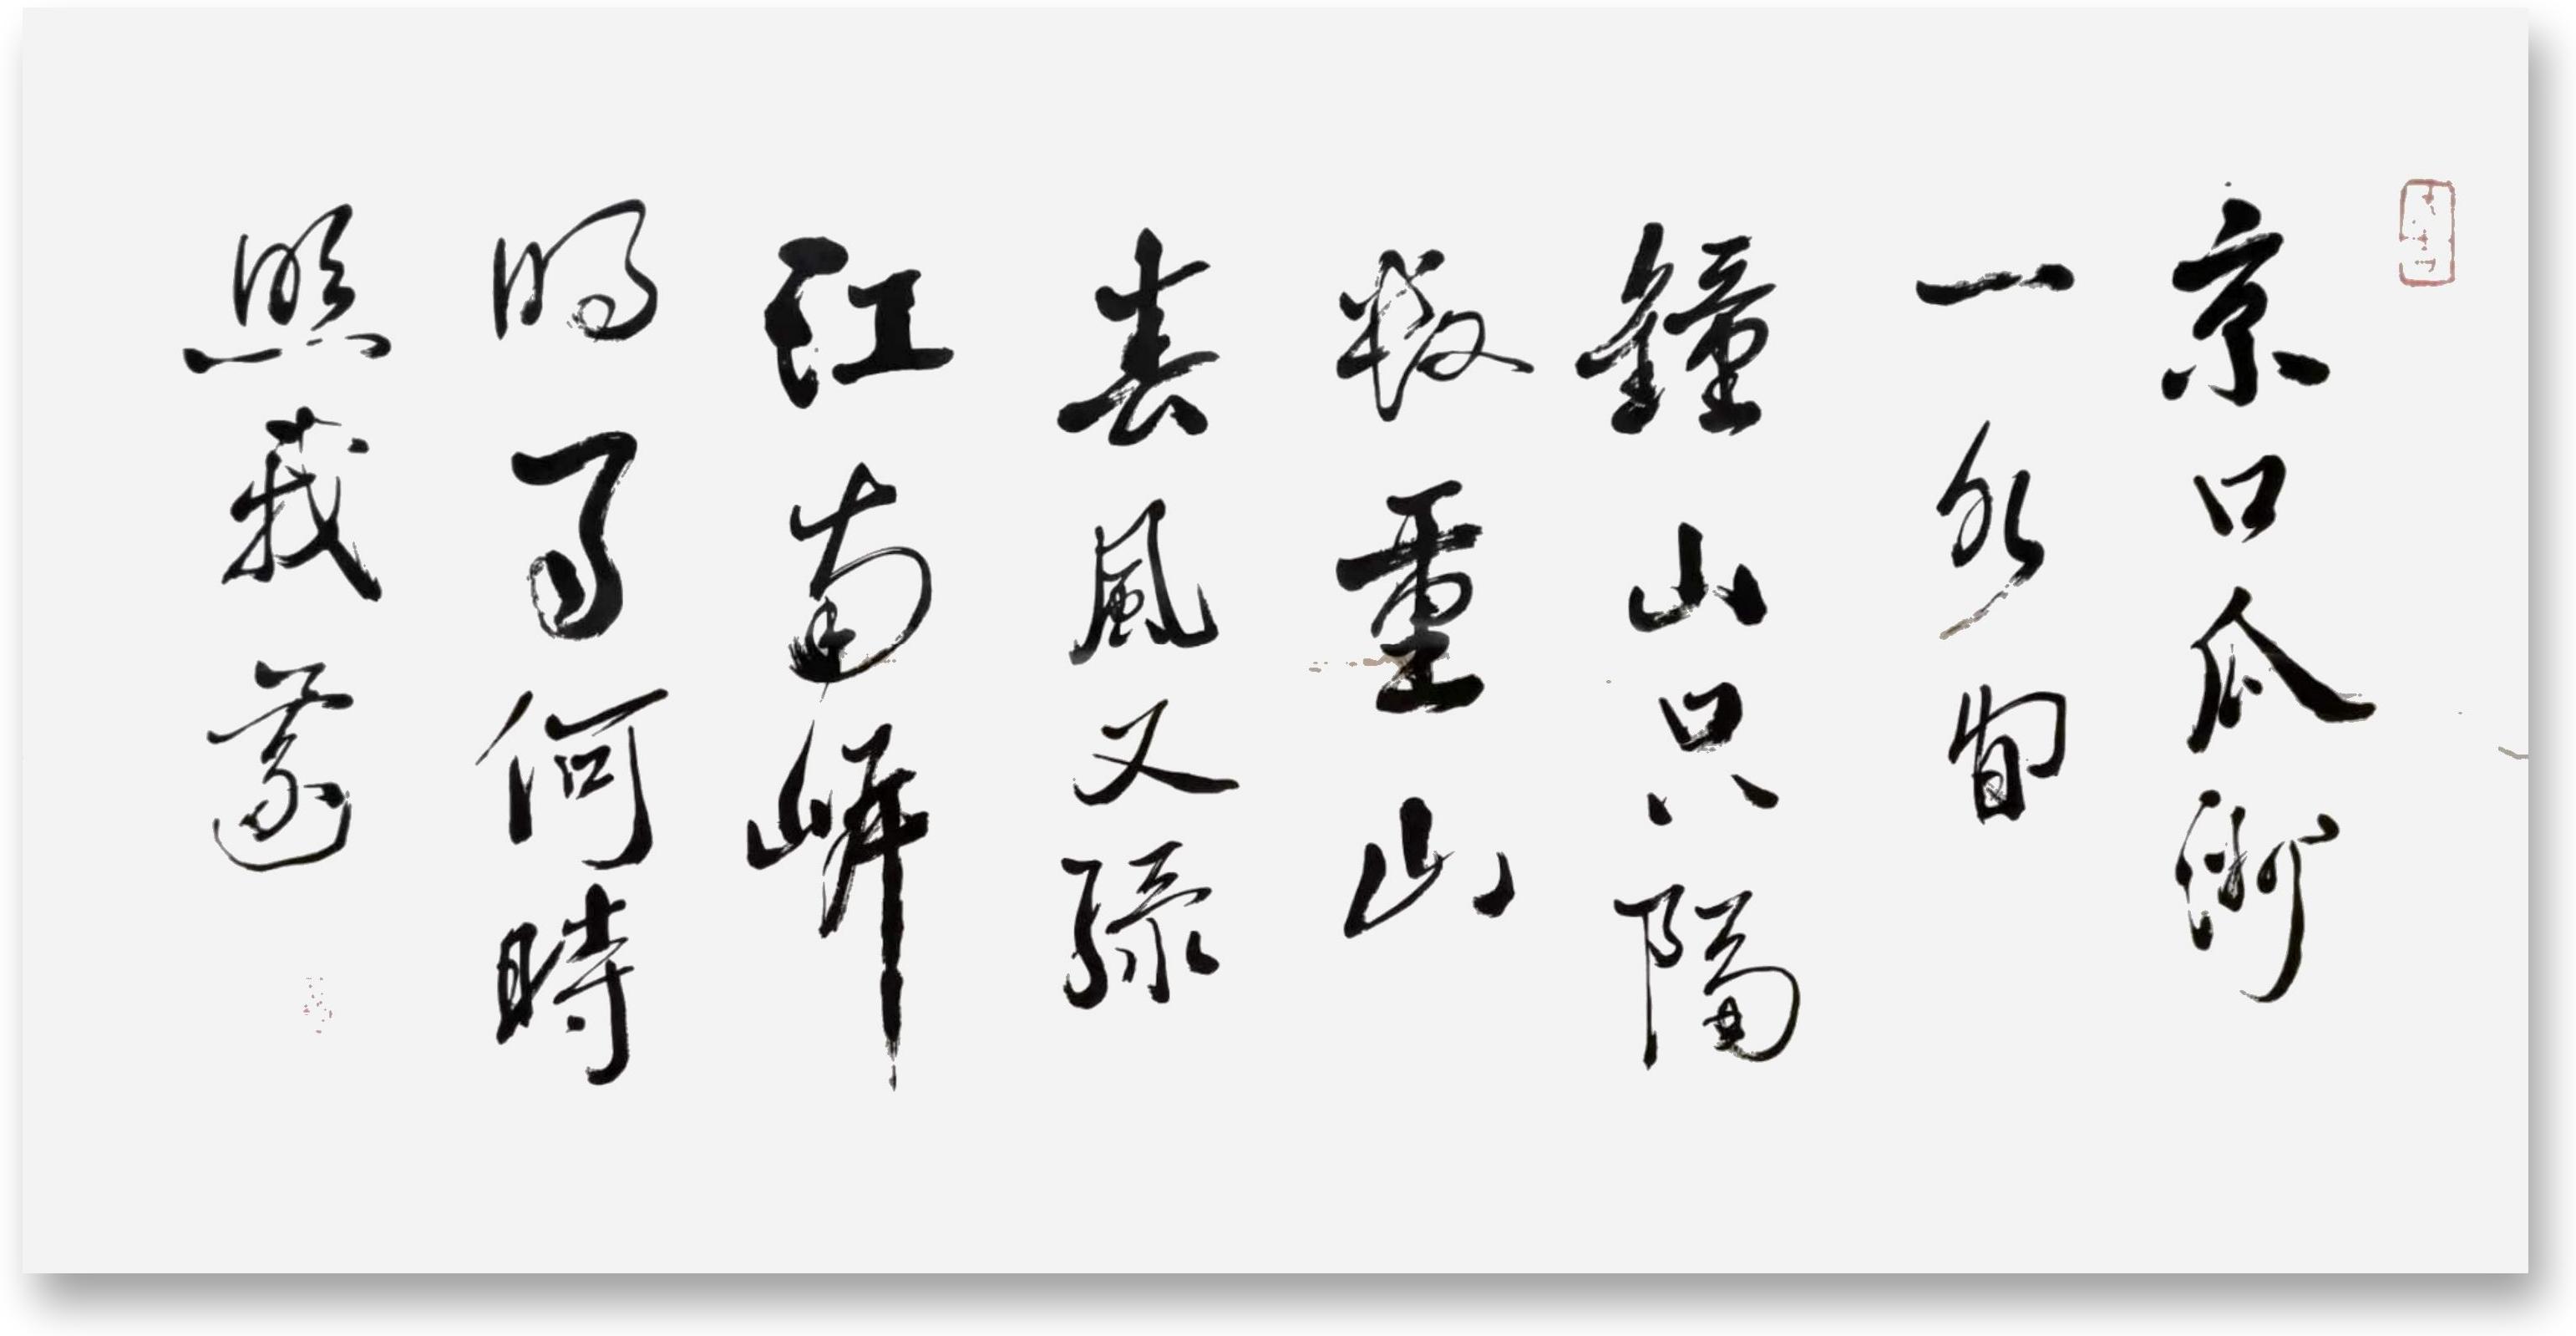 京口瓜洲
一水間
鐘山只隔
數重山
春風又綠
江南岸
明月何時
照我還